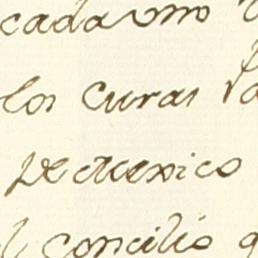 cada uno
los curas
De Mexico
el concilio